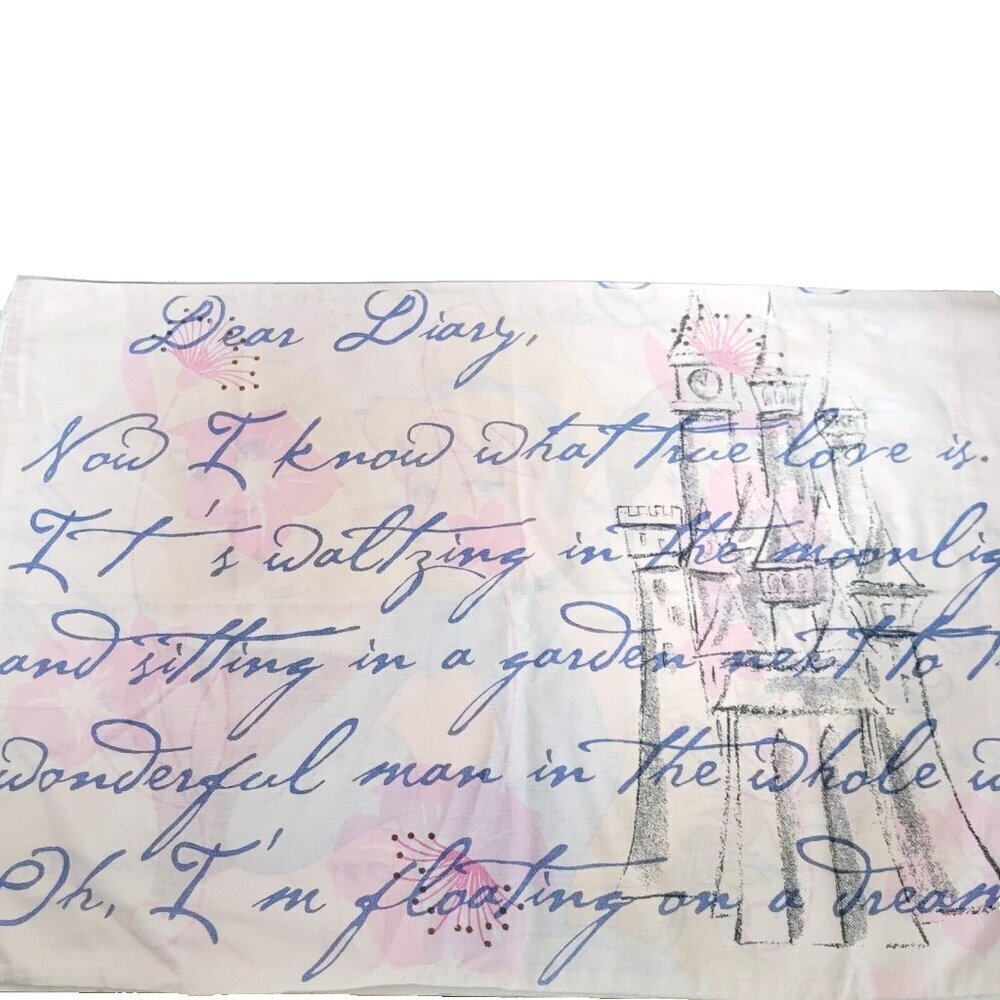 Dear Diary,
Now I know what true love is.
It's waltzing in the moonlig
and sitting in a garden next to t
wonderful man in the whole w
Oh, I'm floating on a dream